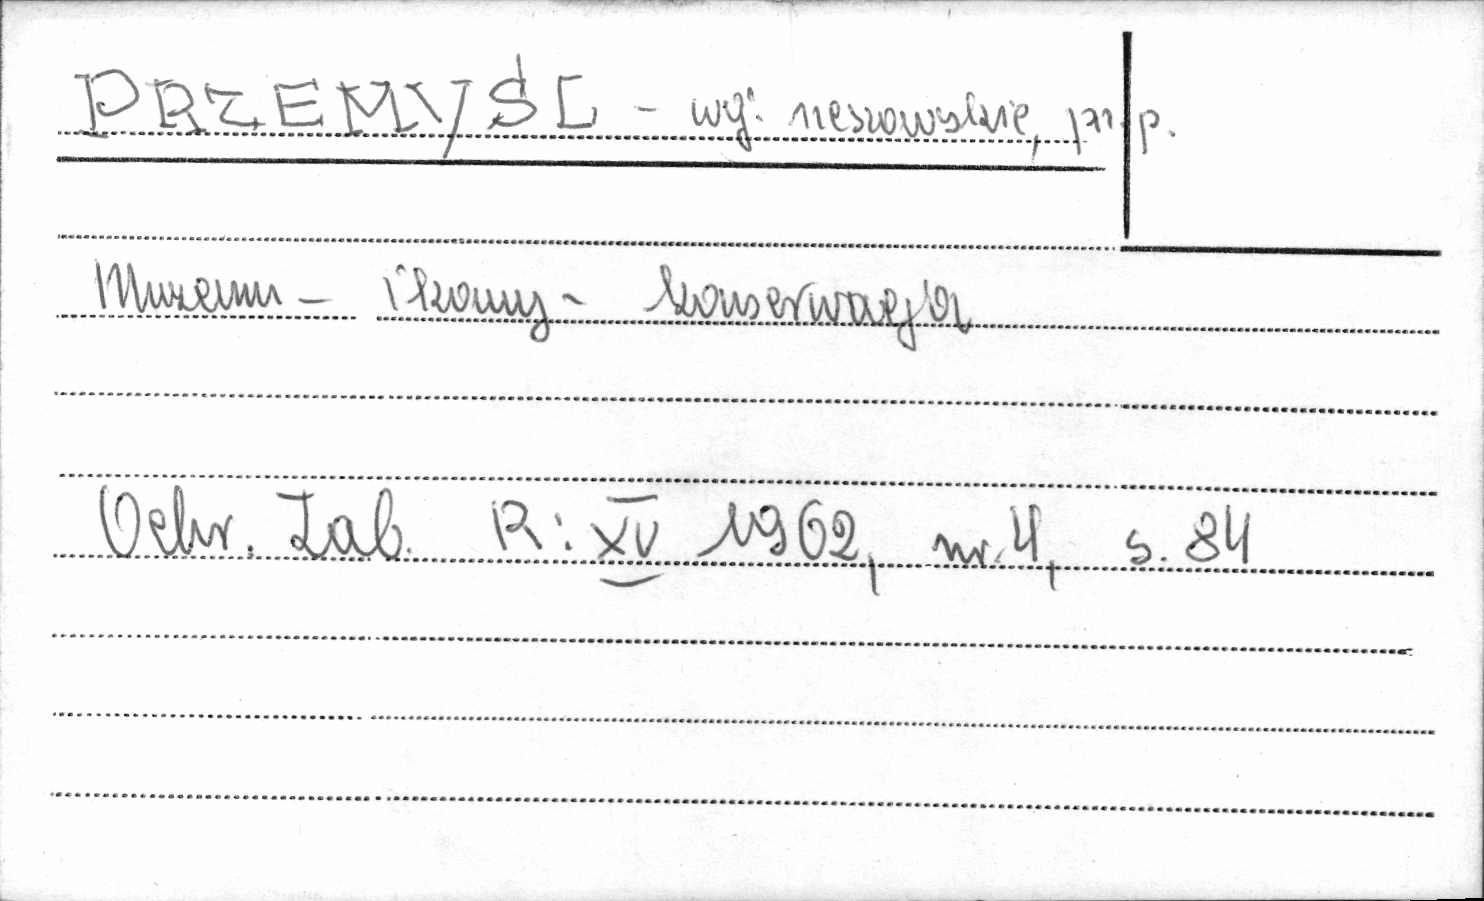 PRZEMYŚL - woj. rzeszowskie, m. p.
Muzeum - ikony - konserwacja
Ochr. Zab. R: XV 1962, nr. 4, s. 84